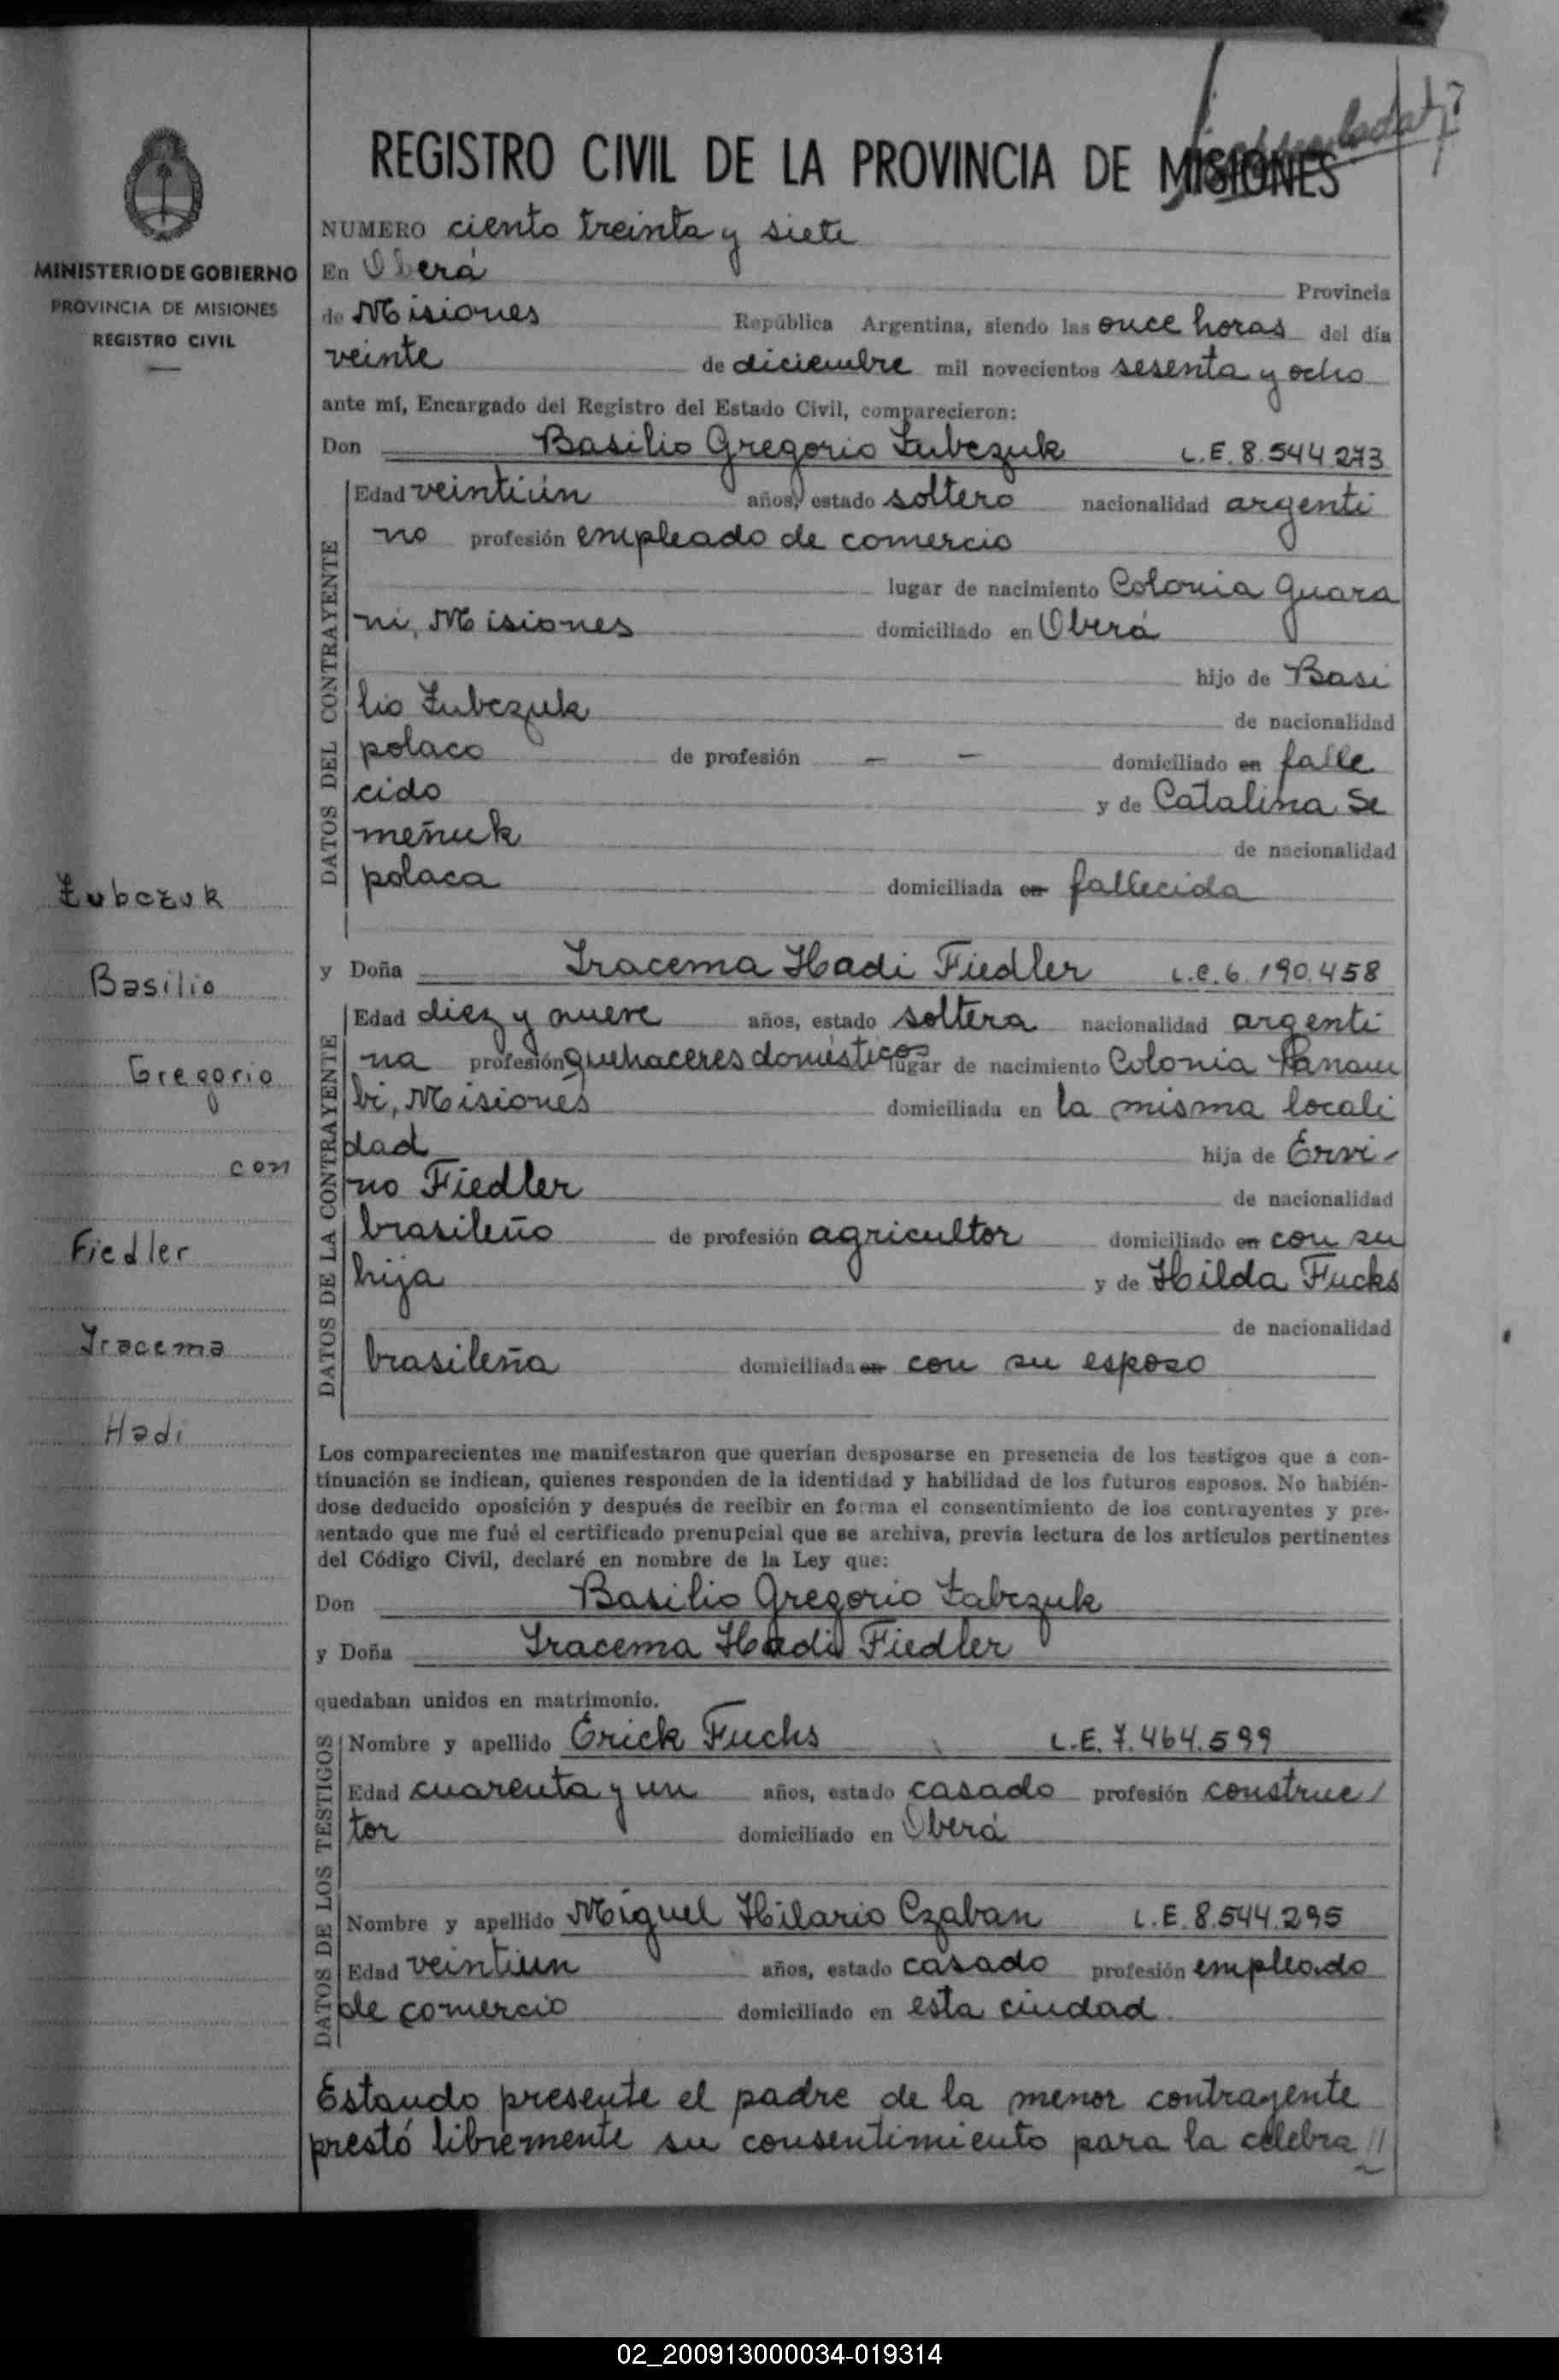 REGISTRO CIVIL DE LA PROVINCIA DE MISIONES
MINISTERIO DE GOBIERNO
PROVINCIA DE MISIONES
REGISTRO CIVIL
Żubczuk
Basilio
Gregorio
con
Fiedler
Iracema
Hadi
NUMERO ciento treinta y siete
En Oberá Provincia
de Misiones República Argentina, siendo las once horas del día
veinte de diciembre mil novecientos sesenta y ocho
ante mí, Encargado del Registro del Estado Civil, comparecieron:
Don Basilio Gregorio Żubczuk L.E. 8.544273
DATOS DEL CONTRAYENTE
Edad veintiún años, estado soltero nacionalidad argenti
no profesión empleado de comercio
lugar de nacimiento Colonia Guara
ni, Misiones domiciliado en Oberá
hijo de Basi
lio Żubczuk de nacionalidad
polaco de profesión — — domiciliado en falle
cido y de Catalina Se
meñuk de nacionalidad
polaca domiciliada en fallecida
y Doña Iracema Hadi Fiedler L.C. 6.190.458
DATOS DE LA CONTRAYENTE
Edad diez y nueve años, estado soltera nacionalidad argenti
na profesión quehaceres domésticos lugar de nacimiento Colonia Panam
bi, Misiones domiciliada en la misma locali
dad hija de Ervi-
no Fiedler de nacionalidad
brasileño de profesión agricultor domiciliado en con su
hija y de Hilda Fucks
de nacionalidad
brasileña domiciliada en con su esposo
Los comparecientes me manifestaron que querían desposarse en presencia de los testigos que a con-
tinuación se indican, quienes responden de la identidad y habilidad de los futuros esposos. No habién-
dose deducido oposición y después de recibir en forma el consentimiento de los contrayentes y pre-
sentado que me fué el certificado prenupcial que se archiva, previa lectura de los artículos pertinentes
del Código Civil, declaré en nombre de la Ley que:
Don Basilio Gregorio Żabczuk
y Doña Iracema Hadi Fiedler
quedaban unidos en matrimonio.
DATOS DE LOS TESTIGOS
Nombre y apellido Erick Fuchs L.E. 7.464.599
Edad cuarenta y un años, estado casado profesión construc/
tor domiciliado en Oberá
Nombre y apellido Miguel Hilario Czaban L.E. 8.544.295
Edad veintiun años, estado casado profesión empleado
de comercio domiciliado en esta ciudad.
Estando presente el padre de la menor contrayente
prestó libremente su consentimiento para la celebra //
02_200913000034-019314